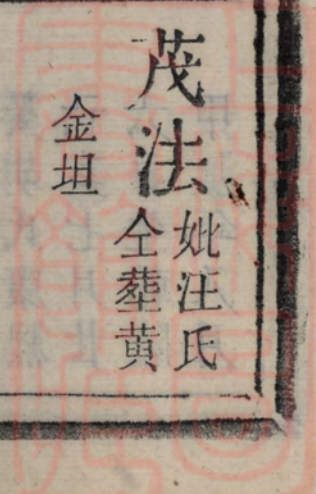 茂法
妣汪氏
仝塟黄
金坦